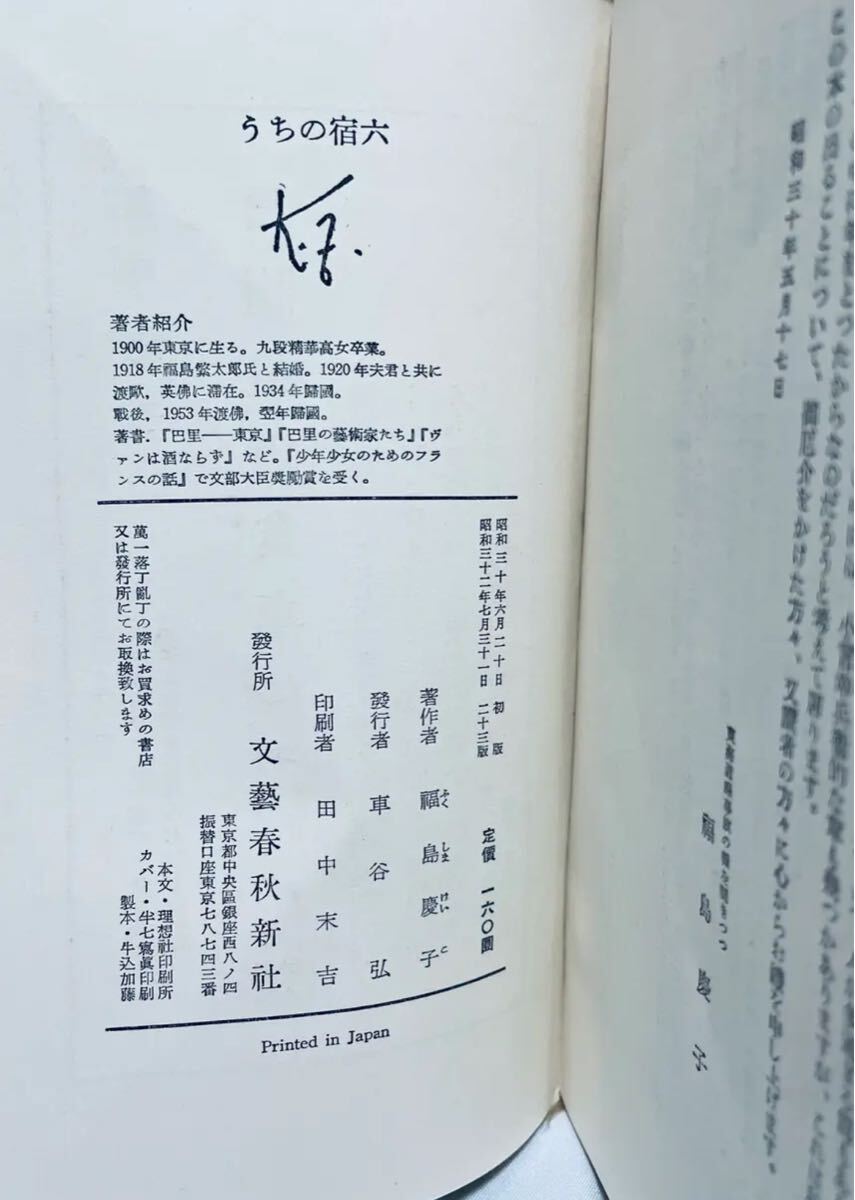 この本の出ることについて、御厄介をかけた方々、又讀者の方々に心からお禮を申し上げます。
昭和三十年五月十七日
福島慶子
うちの宿六
著者紹介
1900年東京に生る。九段精華高女卒業。
1918年福島繁太郎氏と結婚。1920年夫君と共に
渡歐，英佛に滯在。1934年歸國。
戰後，1953年渡佛，翌年歸國。
著書．『巴里――東京』『巴里の藝術家たち』『ヴ
ァンは酒ならず』など。『少年少女のためのフラ
ンスの話』で文部大臣奬勵賞を受く。
昭和三十年六月二十日 初版
昭和三十二年七月三十一日 二十三版
定價 一六〇圓
著作者 福島慶子
ふくしまけいこ
發行者 車谷弘
印刷者 田中末吉
發行所 文藝春秋新社
東京都中央區銀座西八ノ四
振替口座東京七八七四三番
本文・理想社印刷所
カバー・半七寫眞印刷
製本・牛込加藤
萬一落丁亂丁の際はお買求めの書店
又は發行所にてお取換致します
Printed in Japan